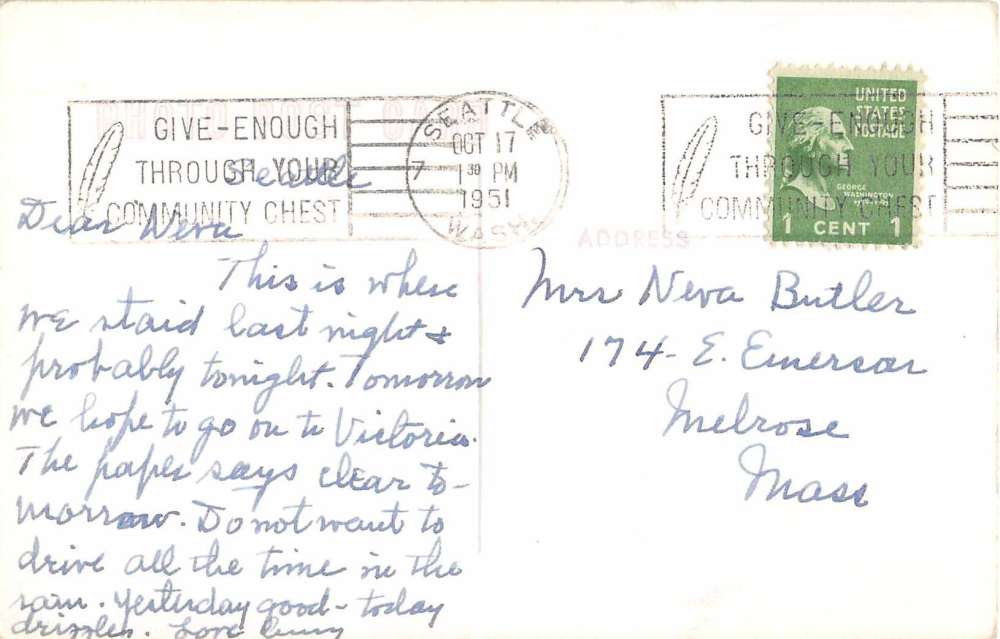 GIVE-ENOUGH
THROUGH YOUR
COMMUNITY CHEST
SEATTLE
OCT 17
1 30 PM
1951
WASH.
7
GIVE-ENOUGH
THROUGH YOUR
COMMUNITY CHEST
UNITED
STATES
POSTAGE
GEORGE
WASHINGTON
1 CENT 1
ADDRESS
Seattle
Dear Neva
This is where
we staid last night &
probably tonight. Tomorrow
we hope to go on to Victoria.
The paper says clear to-
morrow. Do not want to
drive all the time in the
rain. Yesterday good - today
drizzles. Love
Mrs Neva Butler
174 - E. Emerson
Melrose
Mass